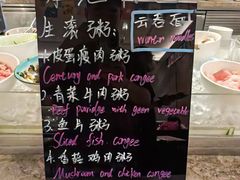 生滚粥:
云吞面
wonton noodles
1.皮蛋瘦肉粥
Century and pork congee
2.青菜片肉粥
porridge with green vegetable
3.鱼片粥
Sliced fish congee
4.香菇鸡肉粥
Mushroom and chicken congee